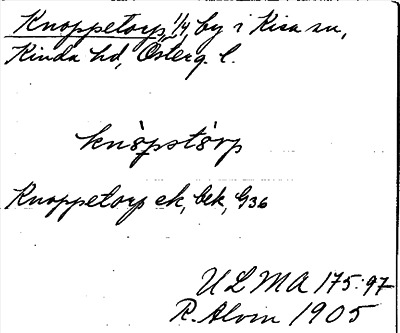 Knoppetorp, 1/4, by i Kisa sn,
Kinda hd, Österg. l.
knòpstòrp
Knoppetorp ek, bek, G36
ULMA 175:97
R. Alvin 1905